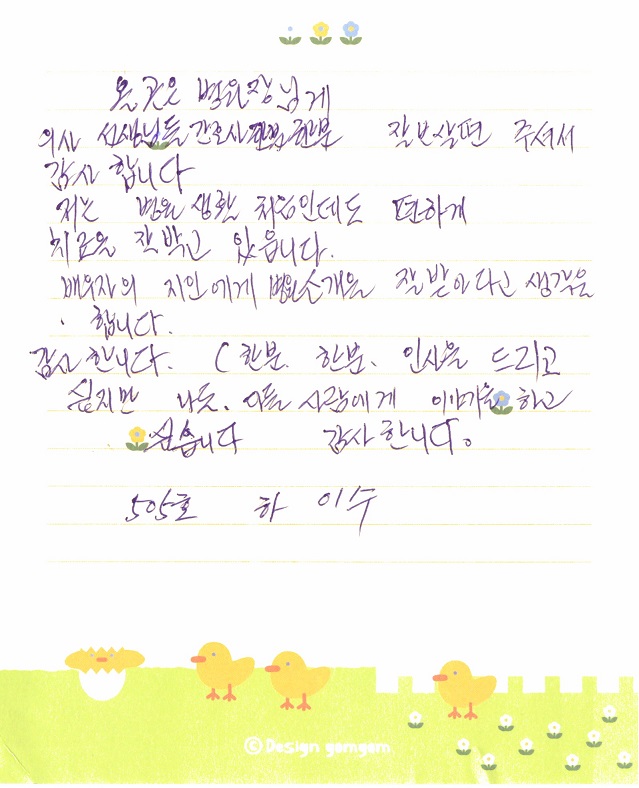 올곧은 병원장님게
의사 선생님들 간호사 한분 한분 잘 보살펴 주셔서
감사 합니다
저는 병원 생활 처음인데도 편하게
치료을 잘 박고 있읍니다.
배우자의 지인에게 병원소개을 잘 받았다고 생각을
합니다.
감사 한니다. (한분. 한분. 인사을 드리고
싶지만 나듯. 이들 사람에게 이야기을 하고
싶습니다 감사한니다.
505호 하 이수
©Design gomgom